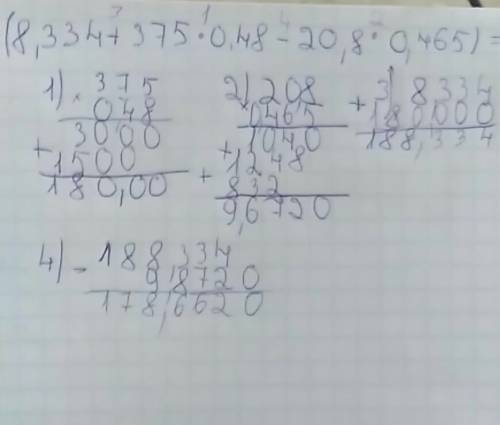 (8,334+375·0,48-20,8·0,465)=
3 1 4 2
1) × 375
048
3000
+ 1500
180,00
2) 208
0465
1040
+ 1248
+ 832
9,6720
3) 8334
+ 180000
188,334
4) - 188,334
9,8720
178,6620